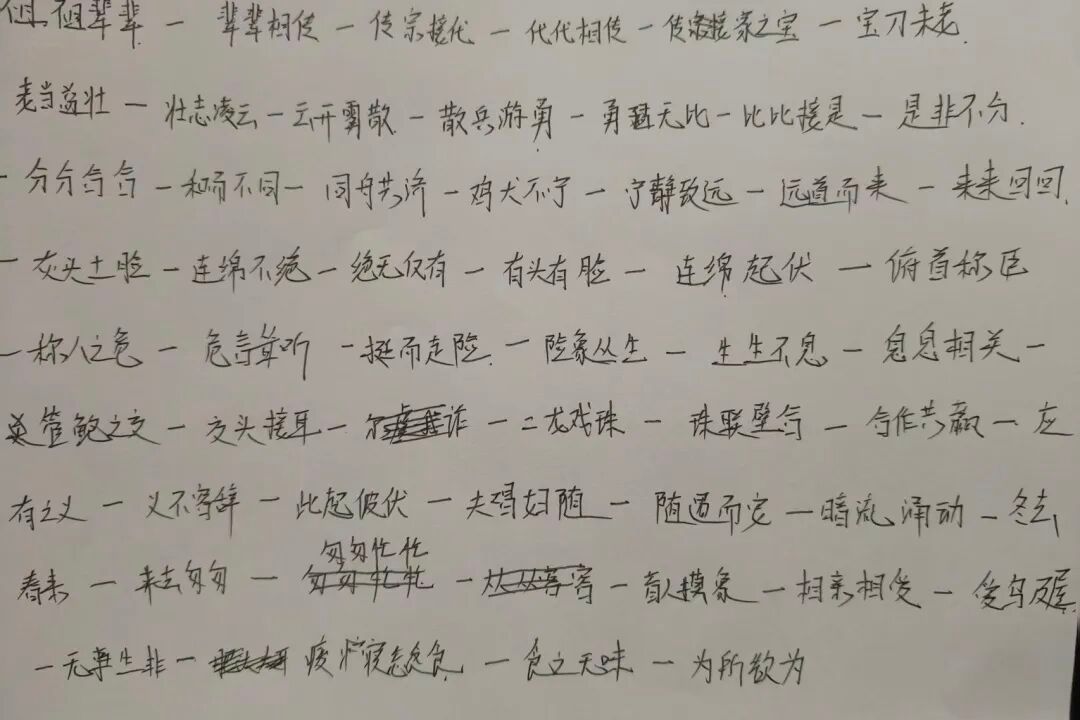 祖祖辈辈 — 辈辈相传 — 传宗接代 — 代代相传 — 传家之宝 — 宝刀未老
老当益壮 — 壮志凌云 — 云开雾散 — 散兵游勇 — 勇猛无比 — 比比接是 — 是非不分
— 分分合合 — 和而不同 — 同舟共济 — 鸡犬不宁 — 宁静致远 — 远道而来 — 来来回回
— 灰头土脸 — 连绵不绝 — 绝无仅有 — 有头有脸 — 连绵起伏 — 俯首称臣
— 称人之危 — 危言耸听 — 挺而走险 — 险象丛生 — 生生不息 — 息息相关 —
管鲍之交 — 交头接耳 — 二龙戏珠 — 珠联璧合 — 合作共赢 — 应
有之义 — 义不容辞 — 此起彼伏 — 夫唱妇随 — 随遇而安 — 暗流涌动 — 冬去
春来 — 来去匆匆 — 匆匆忙忙 — 盲人摸象 — 相亲相爱 — 爱乌及屋
— 无事生非 — 废寝忘食 — 食之无味 — 为所欲为